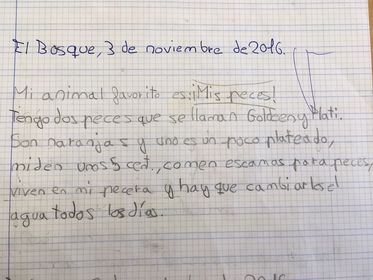 El Bosque, 3 de noviembre de 2016.
Mi animal favorito es: ¡Mis peces!
Tengo dos peces que se llaman Golden y Plati.
Son naranjas y uno es un poco plateado,
miden unos 5 cet., comen escamas para peces,
viven en mi pecera y hay que cambiarles el
agua todos los días.